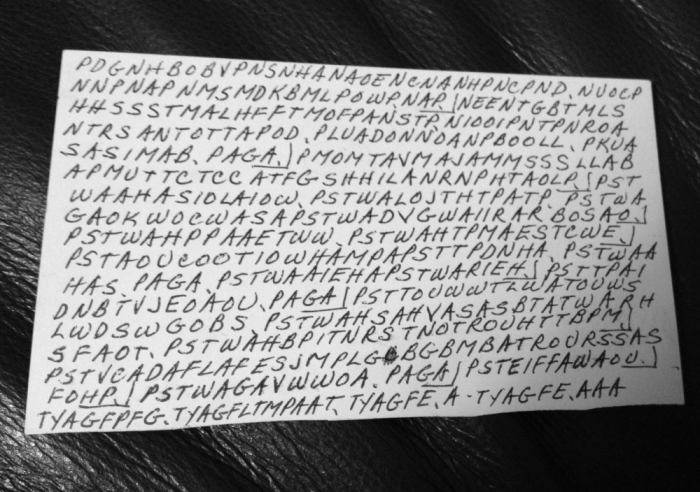 PDGNHBOBVPNSNHANAOENCNANHPNCPND, NUOCP
NNPNAPNMSMDKBMLPOWPNAP.|NEENTGBTMLS
HHSSSTMALHFFTMOFPANSTP, NIOOIPNTPNROA
NTRSANTOTTAPOD, PLUADONNOANPBOOLL, PKUA
SASIMAB, PAGA.|PMOMTAVMAJAMMSSSLLAB
APMUTTCTCC ATFGSHHILANRNPHTAOLP.|PST
WAAHASIOLAIOW, PSTWALOJTHTPATP, PSTWA
GAOKWOCWASAPSTWADVGWAIIRAR, BOSAO.|
PSTWAHPPAAETWW, PSTWAHTPMAESTCWE.|
PSTAOUCOOTIOWHAMPAPSTTPDNHA, PSTWAA
HAS PAGA, PSTWAAIEHAPSTWARIEH.|PSTTPAI
DNBTVJEOAOU, PAGA|PSTTOUWWTLWATOUWS
LWDSWGOBS, PSTWAHSAHVASASBTATWARH
SFAOT, PSTWAHBPITNRSTNOTROUHTTBPM.|
PSTVCADAFLAFESJMPLGBGBMBATROURSSAS
FOHP.|PSTWAGAVWWOA, PAGA|PSTEIFFAWAOU.|
TYAGFPFG, TYAGFLTMPAAT, TYAGFE, A-TYAGFE, AAA